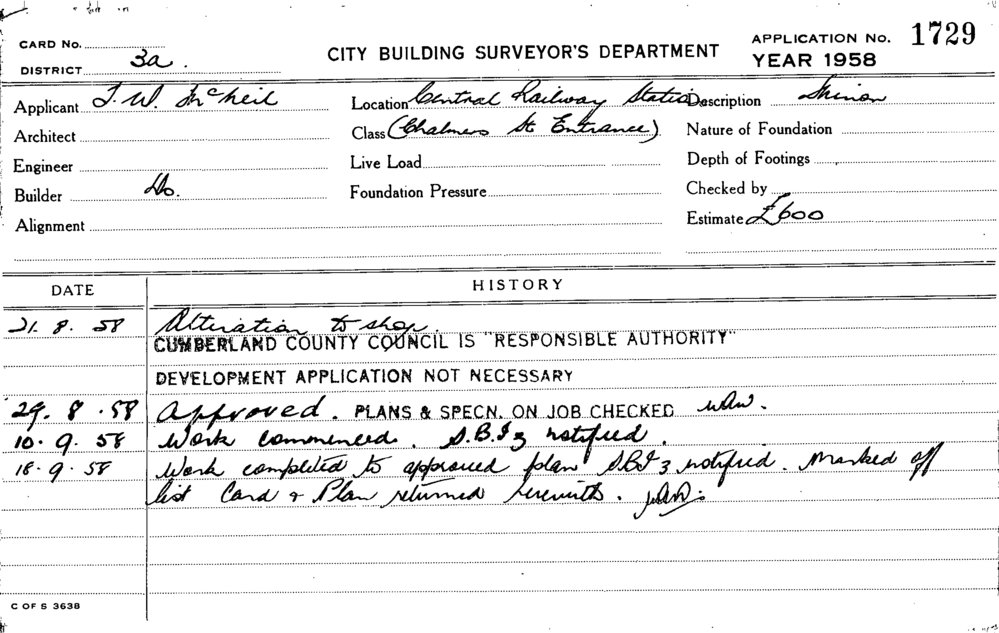 CARD No.
DISTRICT 3a.
CITY BUILDING SURVEYOR'S DEPARTMENT
APPLICATION No. 1729
YEAR 1958
Applicant J. W. McNeil
Location Central Railway Station
Description
Architect
Class (Chalmers St Entrance)
Nature of Foundation
Engineer
Live Load
Depth of Footings
Builder Do.
Foundation Pressure
Checked by
Alignment
Estimate £600
DATE HISTORY
21. 8. 58 Alteration to shop.
CUMBERLAND COUNTY COUNCIL IS "RESPONSIBLE AUTHORITY"
DEVELOPMENT APPLICATION NOT NECESSARY
29. 8. 58 Approved. PLANS & SPECN. ON JOB CHECKED
10. 9. 58 Work commenced. S.B.I 3 notified.
18. 9. 58 Work completed to approved plan SBI 3 notified. Marked off
list Card & Plan returned herewith.
C OF S 3638